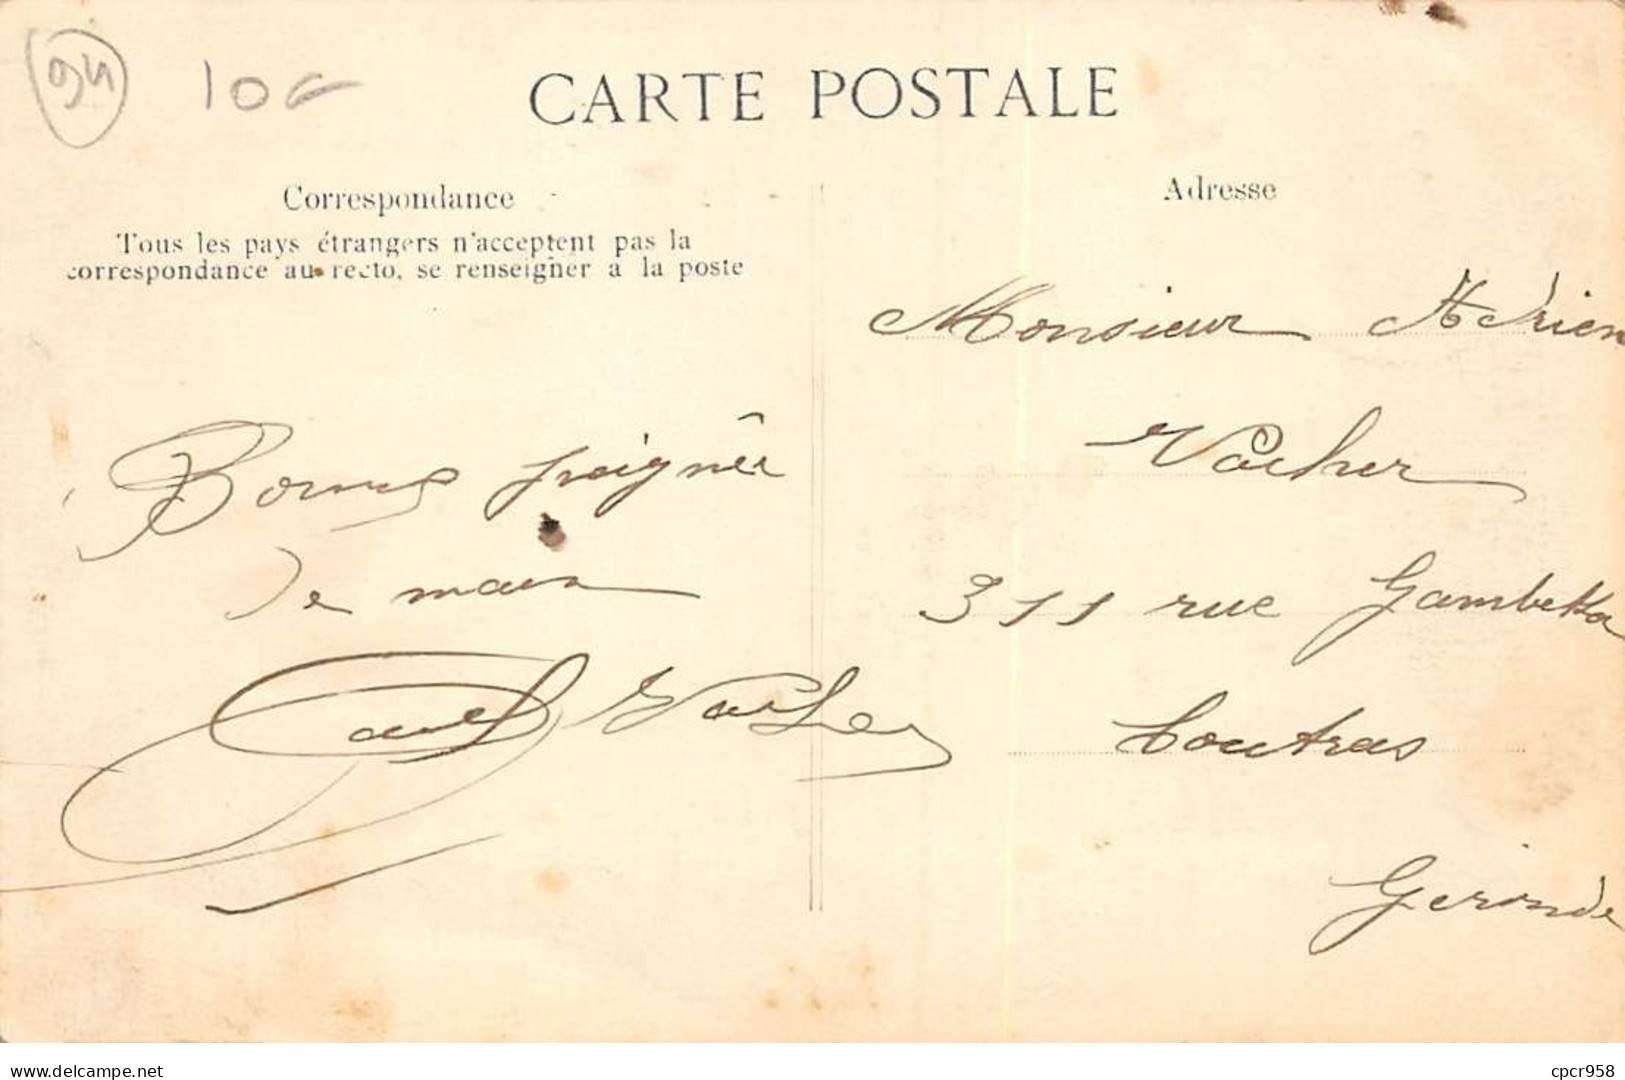 94
10
CARTE POSTALE
Correspondance
Tous les pays étrangers n'acceptent pas la
correspondance au recto, se renseigner à la poste
Adresse
Monsieur Adrien
Vacher
311 rue Gambetta
Coutras
Gironde
Bonne poignée
de main
Paul Vacher
Website: delcampe.net
cpcr958